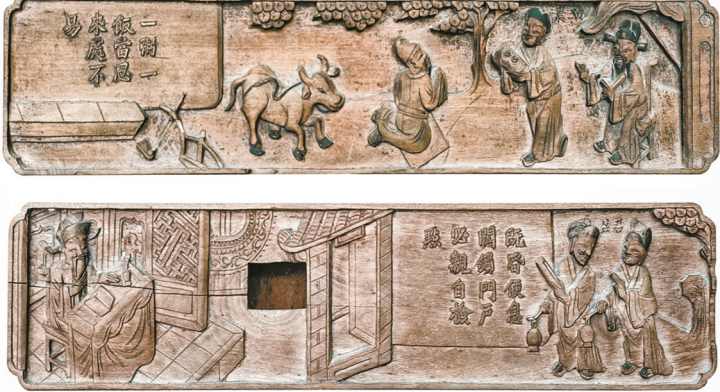 一粥一
飯當思
來處不
易
既昏便息
關鎖門戶
必親自檢
點